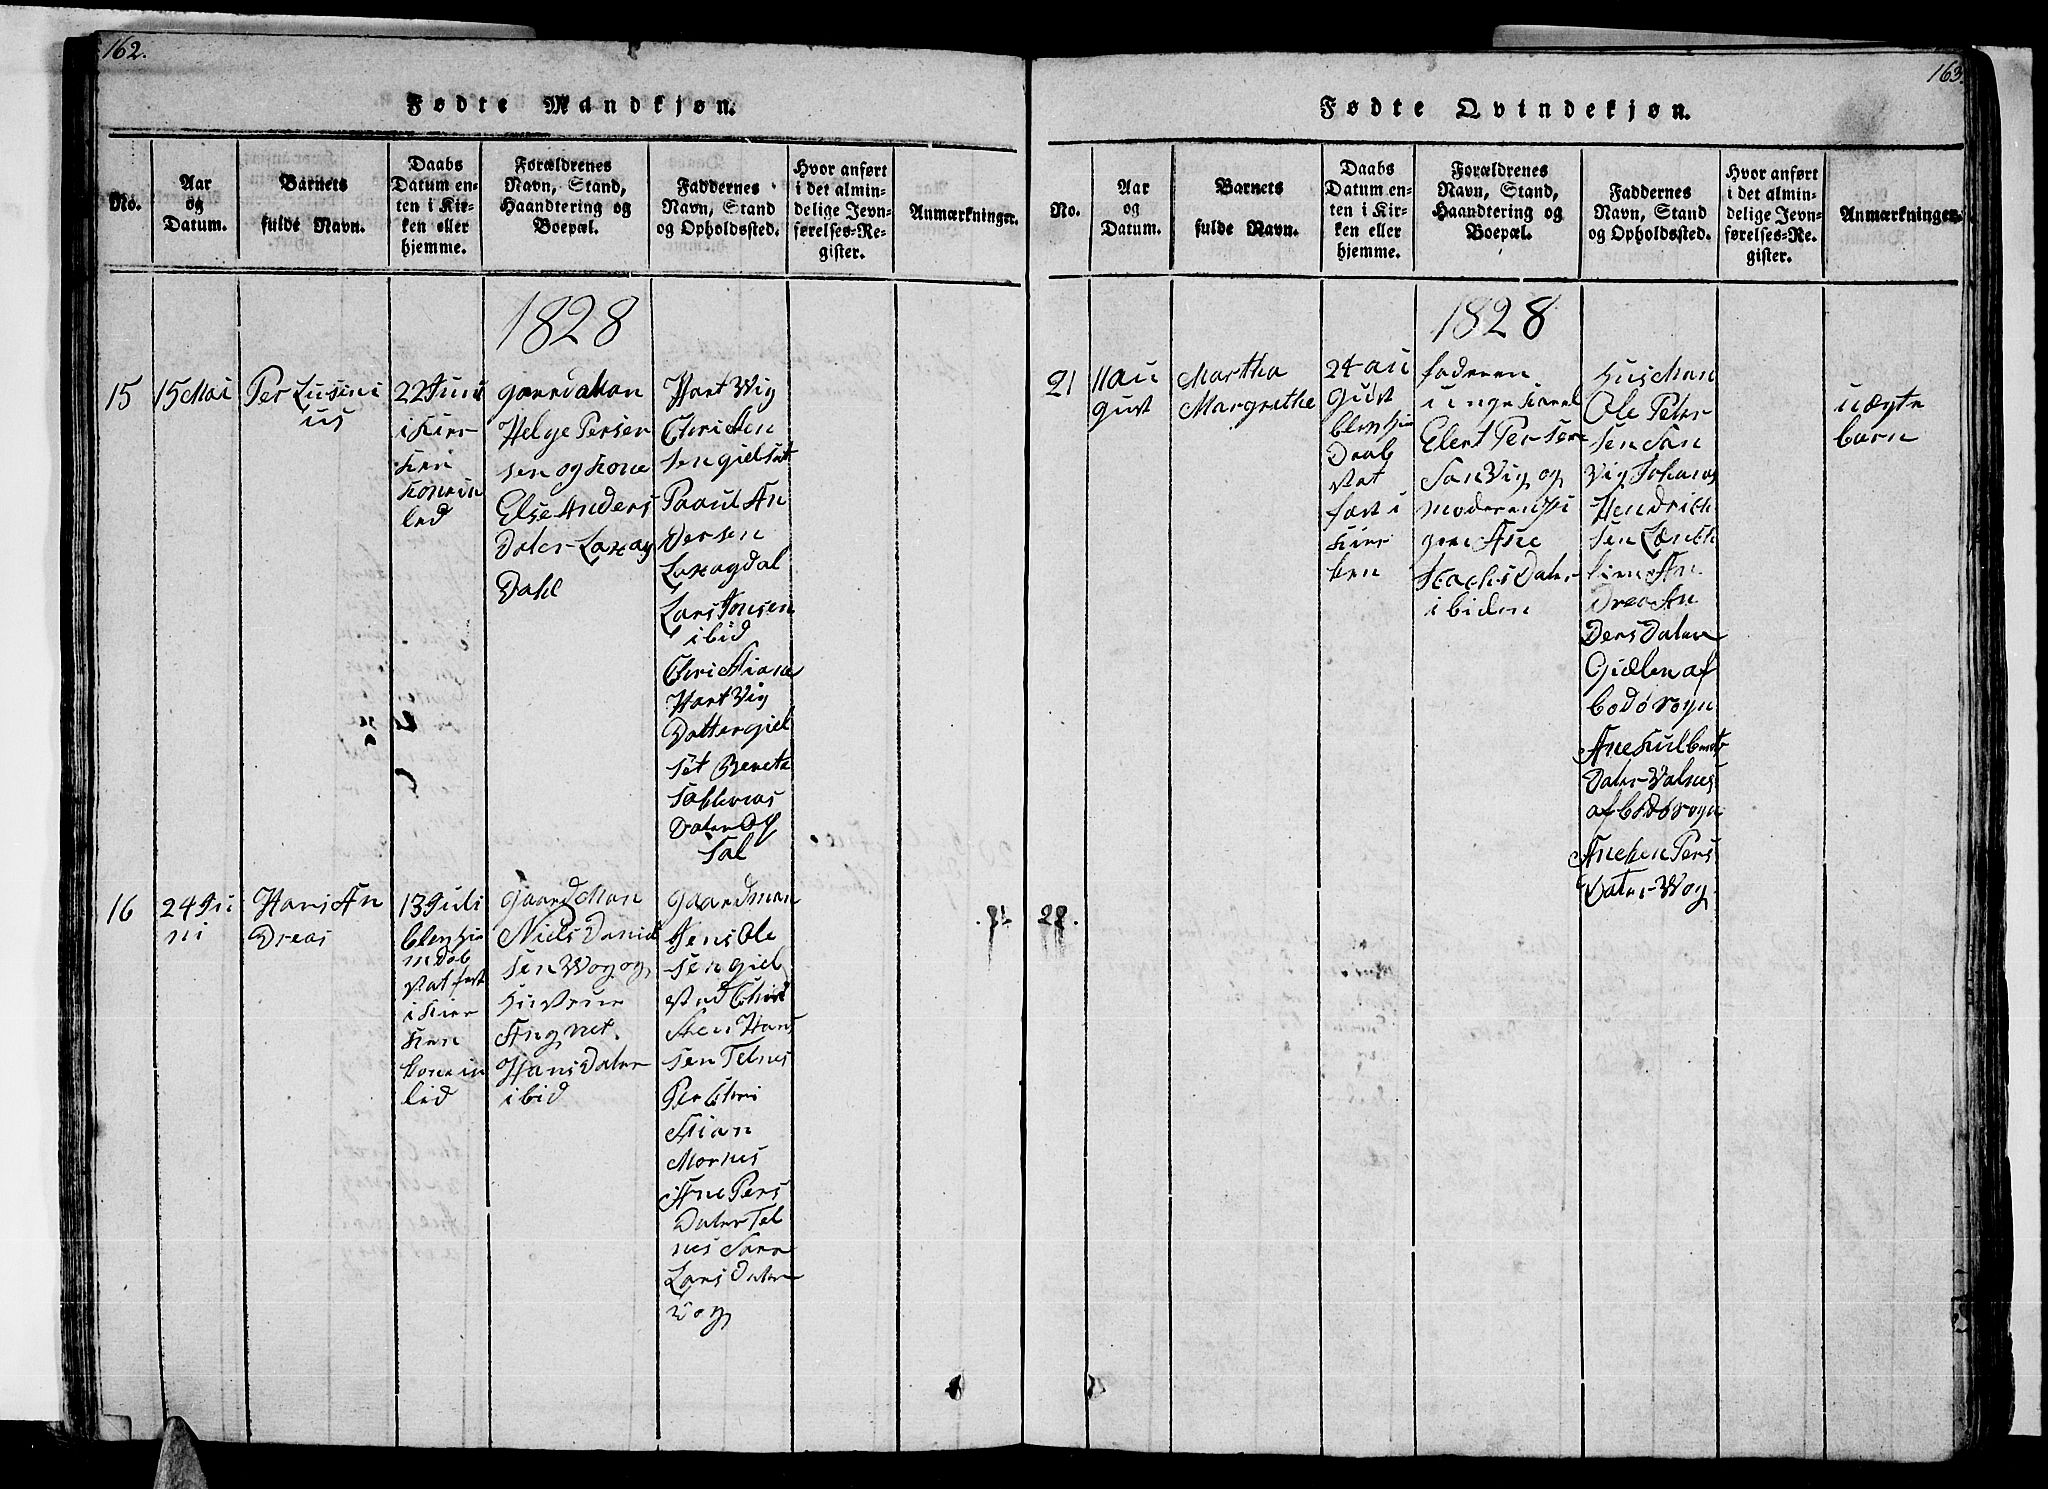 162.
Fødte Mandkjøn.
No.
Aar
og
Datum.
Barnets
fulde Navn.
Daabs
Datum en-
ten i Kir-
ken eller
hjemme.
Forældrenes
Navn, Stand,
Haandtering og
Boepæl.
Faddernes
Navn, Stand
og Opholdssted.
Hvor anført
i det almin-
delige Jevn-
førelses-Re-
gister.
Anmærkninger.
1828
15
15 Mai
Per Lusini
us
22 Juni
i Kier
ken
kone in
led
gaardMan
Helge Persen
sen og kone
Else Anders
Dater Laxag
Dahl
HartWig
Christen
sen gielset
Paaul An
Dersen
Laxagdal
Lars Jonsen
ibid
Christiane
HartVig
Datter giel
set Bereta
Dater
16
24 Ju
ni
Hans An
Dreas
13 Juli
blev hie
mdøb
vat fest
i Kier
ken
kone in
led
gaardMan
Niels Daniel
sen Wog og
Hustrue
Angnet
HansDater
ibid
gaardman
Jens Ole
sen giel
vad Chri
sten Hans
sen Telnes
Per Chri
stian
Mornes
Ane Pers
Dater Tel
nes Sara
Lars Dater
Vog
163.
Fødte Qvindekjøn.
No.
Aar
og
Datum.
Barnets
fulde Navn.
Daabs
Datum en-
ten i Kir-
ken eller
hjemme.
Forældrenes
Navn, Stand,
Haandtering og
Boepæl.
Faddernes
Navn, Stand
og Opholdssted.
Hvor anført
i det almin-
delige Jevn-
førelses-Re-
gister.
Anmærkninger.
1828
21
11 au
gust
Martha
Margrethe
24 au
gust
blev hie
Daab
vat
fæst i
Kier
ken
faderen
unge karel
Elert Persen
SanVig og
moderen pi
gen Ane
Dater
ibiden
HusMan
Ole Peter
sen San
Vig Johanes
Hendrich
sen
An
Drea An
DersDater
Gidlen af
bodö sogn
Ane
Dater Valnes
af bodö sogn
Anehen Pers
Dater Wog
uægte
barn
22.